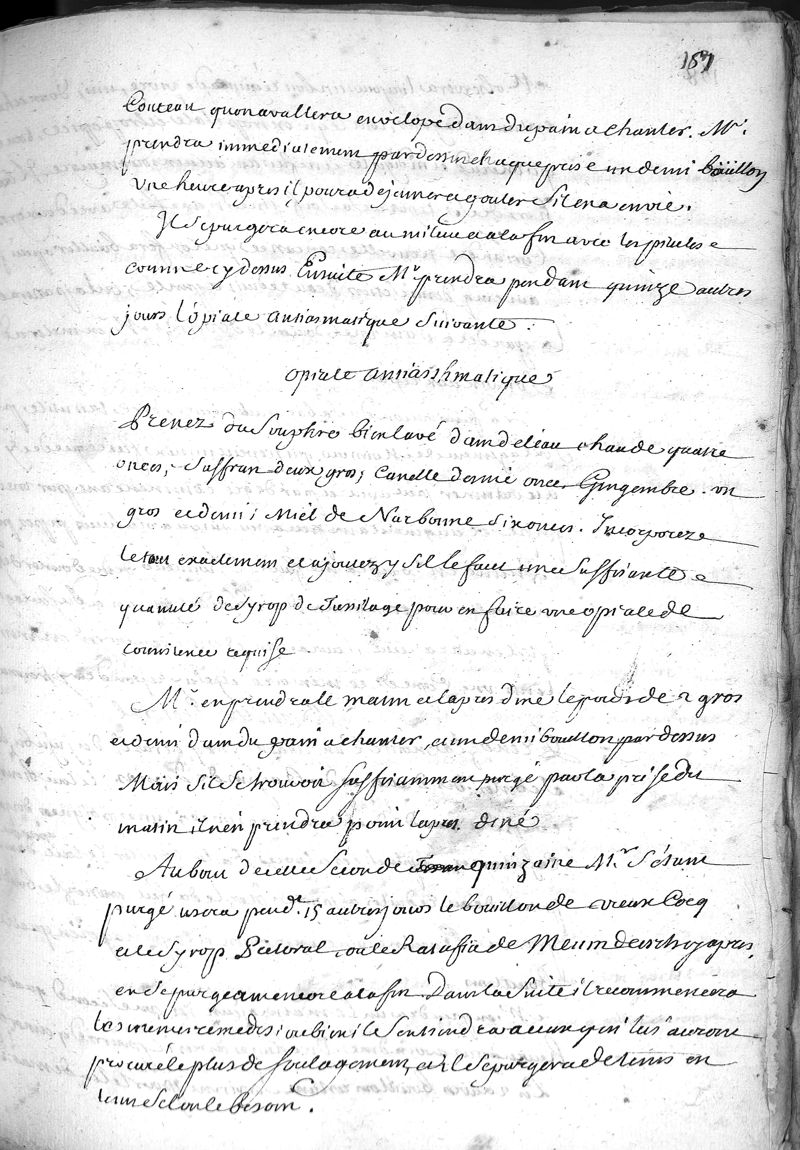 187
Couteau quon avallera envelopé dans du pain a chanter. Mr.
prendra immediatement par dessus chaque prise un demi boüillon
Une heure apres il poura dejeuner ou gouter sil en a envie.
Il se purgera encore au milieu et a la fin avec les pilules
comme cy dessus. Ensuite Mr prendra pendant quinze autres
jours l'opiate antiasmatique suivante.
opiate antiasthmatique
Prenez du souphre bien lavé dans de leau chaude quatre
onces, Saffran deux gros, Canelle demie once, Gingembre un
gros et demi, Miel de Narbonne six onces. Incorporez
le tout exactement et ajoutez y sil le faut une suffisante
quantité de Syrop de Tussilage pour en faire une opiate de
consistence requise
Mr. en prendra le matin et lapres diné le poids de 2 gros
et demi dans du pain a chanter, et un demi bouillon par dessus
Mais sil se trouvoit suffisamment purgé par la prise du
matin il nen prendra point lapres diné
Au bout de cette seconde quinzaine Mr. s'etant
purgé usera pendt. 15 autres jours le bouillon de vieux Cocq
et le Syrop Pectoral ou le Ratafia de Meum decrits cy apres,
en se purgeant encore a la fin. Dans la suite il recommencera
les memes remedes, ou bien il se en tiendra a ceux qui lui auront
procuré le plus de soulagement, et il se purgera de tems en
tems selon le besoin.